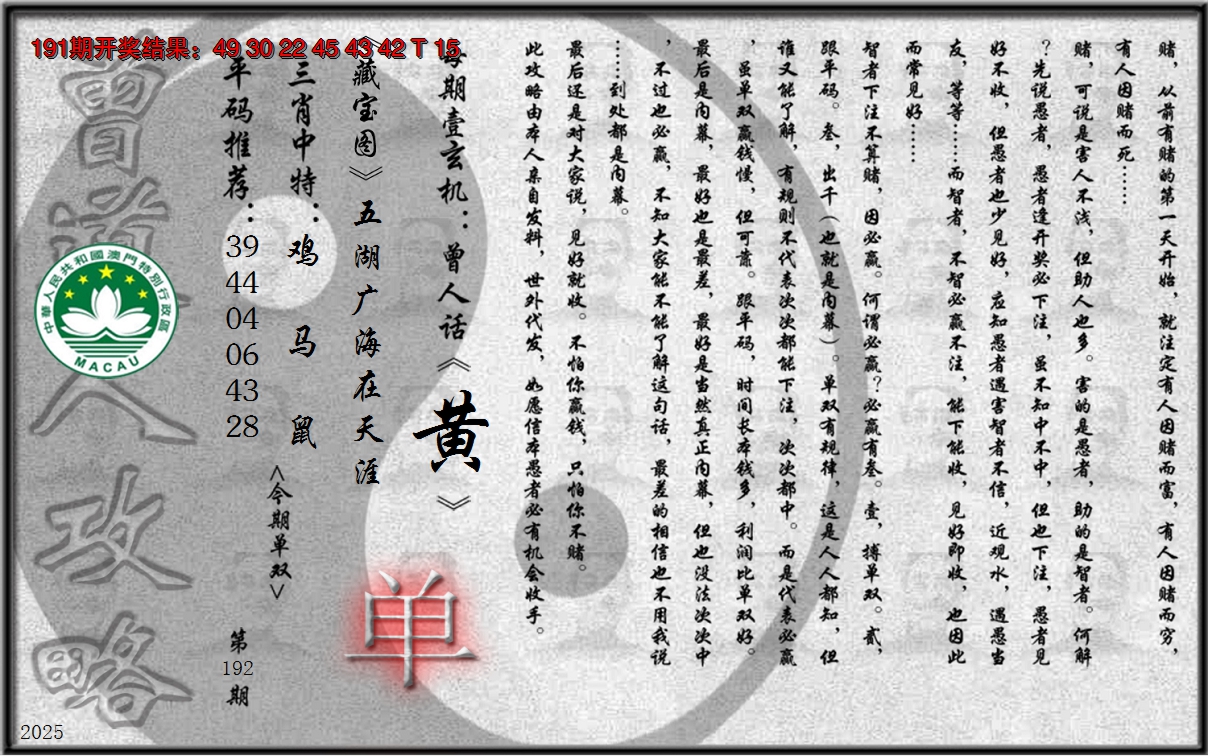 191期开奖结果：49 30 22 45 43 42 T 15
赌，从前有赌的第一天开始，就注定有人因赌而富，有人因赌而穷，
有人因赌而死……
赌，可说是害人不浅，但助人也多。害的是愚者，助的是智者。何解
？先说愚者，愚者逢开奖必下注，虽不知中不中，但也下注，愚者见
好不收，但愚者也少见好，应知愚者遇害智者不信，近观水，遇愚当
友，等等……而智者，不智必赢不注，能下能收，见好即收，也因此
而常见好……
智者下注不算赌，因必赢。何谓必赢？必赢有叁。壹，搏单双。贰，
跟平码。叁，出千（也就是内幕）。单双有规律，这是人人都知，但
谁又能了解，有规则不代表次次都能下注，次次都中。而是代表必赢
，虽单双赢钱慢，但可靠。跟平码，时间长本钱多，利润比单双好。
最后是内幕，最好也是最差，最好是当然真正内幕，但也没法次次中
，不过也必赢，不知大家能不能了解这句话，最差的相信也不用我说
……到处都是内幕。
最后还是对大家说，见好就收。不怕你赢钱，只怕你不赌。
此攻略由本人亲自发料，世外代发，如愿信本愚者必有机会收手。
每期壹玄机：曾人话《黄》
《藏宝图》五湖广海在天涯
单
三肖中特：鸡 马 鼠
<今期单双>
平码推荐：39 44 04 06 43 28
第192期
曾道人攻略
中華人民共和國澳門特別行政區
MACAU
2025